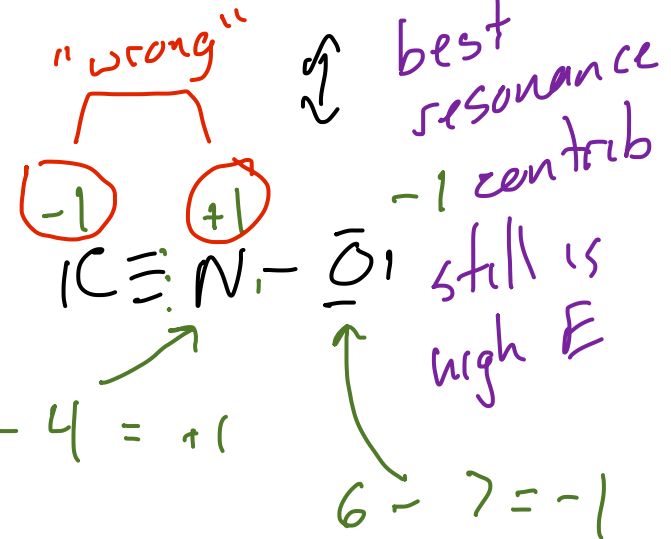 "wrong"
best
resonance
contrib
still is
high E
-1 +1 -1
|C≡N-O|
- 4 = +1
6 - 7 = -1